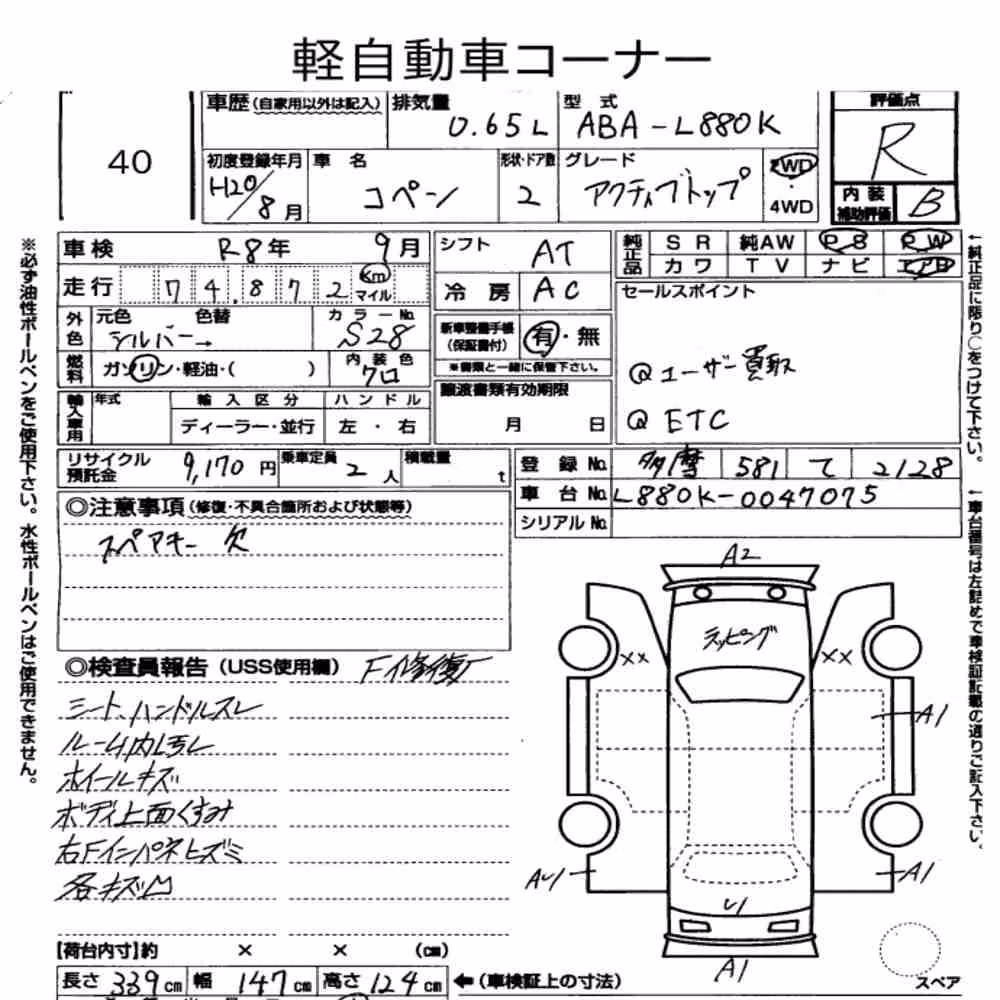 軽自動車コーナー
40
車歴(自家用以外は記入) 排気量 0.65L 型式 ABA-L880K
評価点 R
初度登録年月 H20/8月 車名 コペン 形状・ドア数 2 グレード アクティブトップ 2WD・4WD
内装補助評価 B
車検 R8年 9月 シフト AT
純正品 SR 純AW PS PW
カワ TV ナビ エアB
走行 74,872 Km マイル 冷房 AC
セールスポイント
外色 元色 シルバー→ 色替 カラーNo. S28
新車整備手帳(保証書付) 有・無
※書類と一緒に保管下さい。
燃料 ガソリン・軽油・( ) 内装色 クロ
◎ユーザー買取
◎ETC
輸入車用 年式 輸入区分 ハンドル
ディーラー・並行 左・右
譲渡書類有効期限
月 日
リサイクル預託金 9,170円 乗車定員 2人 積載量 t
登録No. 多摩 581 て 2128
車台No. L880K-0047075
シリアルNo.
◎注意事項(修復・不具合箇所および状態等)
スペアキー欠
◎検査員報告(USS使用欄) F修復歴
シート、ハンドルスレ
ルーム内汚レ
ホイールキズ
ボディ上面くすみ
右Fインパネヒズミ
各キズ凹
A2
ラッピング
XX
XX
A1
AU1
A1
U1
A1
スペア
【荷台内寸】約 × × (cm)
長さ 339cm 幅 147cm 高さ 124cm ←(車検証上の寸法)
※必ず油性ボールペンをご使用下さい。水性ボールペンはご使用できません。
←純正品に限り○をつけて下さい。
←車台番号は左詰めで車検証記載の通りご記入下さい。